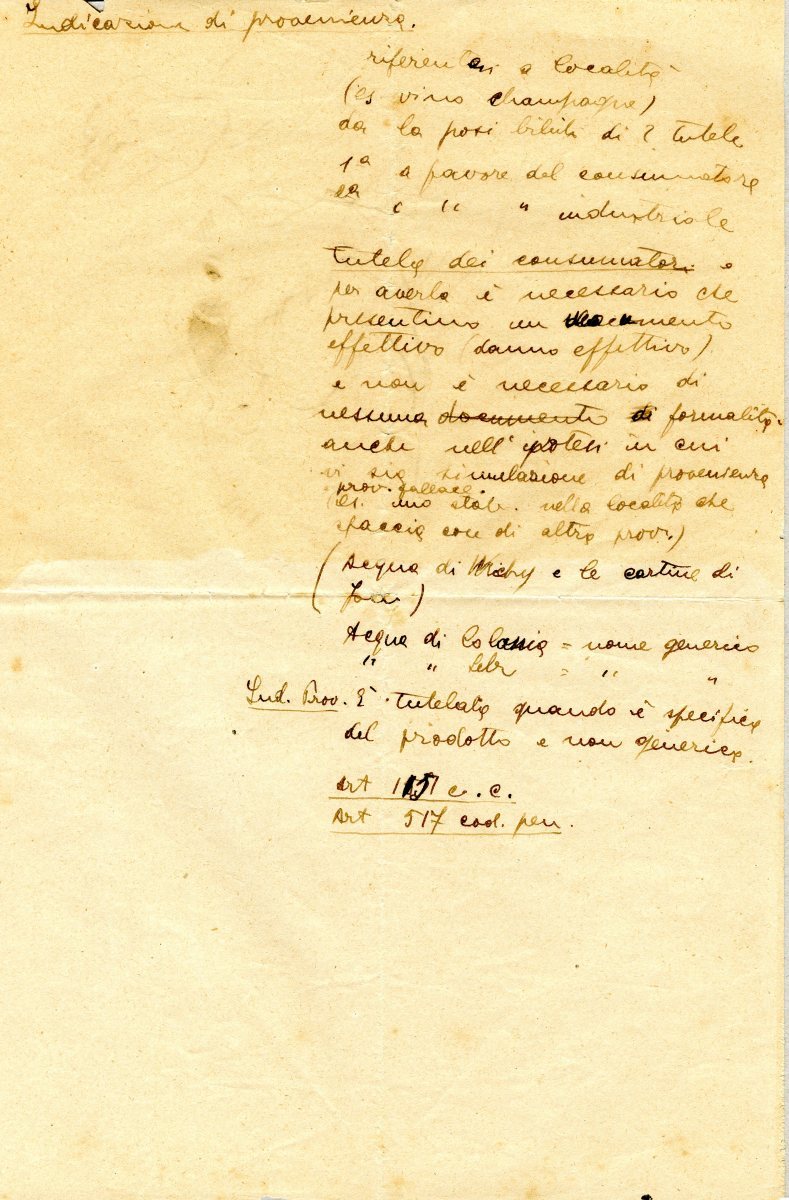 Indicazioni di provenienza.
riferentesi a località
(es vino champagne)
da la possibilità di 2 tutele
1ª a favore del consumatore
2ª " " " industriale
tutela dei consumatori
per averla è necessario che
presentino un
effettivo (danno effettivo)
e non è necessario di
nessuna documento di formalità
anche nell'ipotesi in cui
vi sia simulazione di provenienza
prov. fallace.
(es. uno stab. nella località che
spaccia con di altra prov.)
(Acqua di Vichy e le cartine di
)
Acqua di Colonia = nome generico
" " = " "
Ind. Prov. È tutelata quando è specifica
del prodotto e non generica.
Art 1151 c.c.
Art 517 cod. pen.